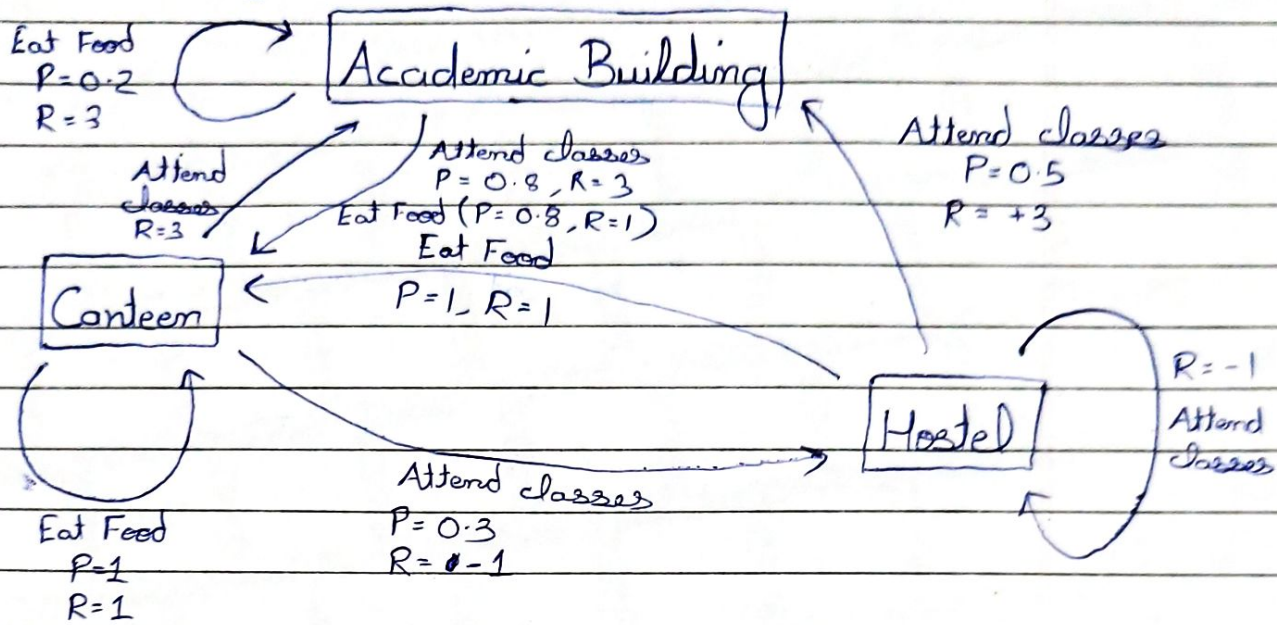 Eat Food
P=0.2
R=3
Academic Building
Attend
classes
R=3
Attend classes
P=0.8, R=3
Eat Food (P=0.8, R=1)
Attend classes
P=0.5
R=+3
Eat Food
P=1, R=1
Canteen
Hostel
R=-1
Attend
classes
Attend classes
P=0.3
R=-1
Eat Food
P=1
R=1